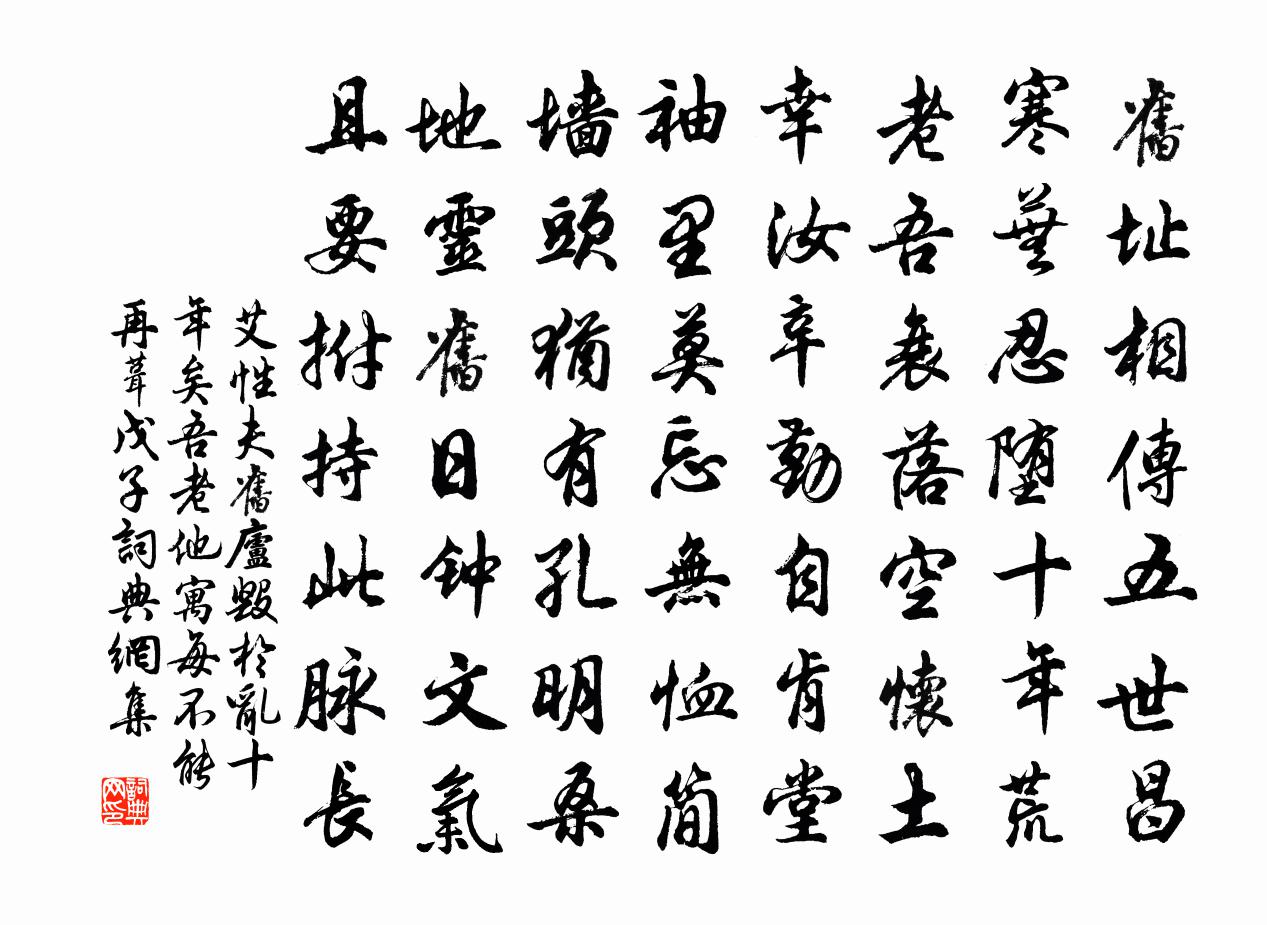 舊址相傳五世昌
寒蕪忍堕十年荒
老吾衰落空懷土
幸汝辛勤自肯堂
袖里莫忘無恤簡
墙頭猶有孔明桑
地靈舊日钟文氣
且要拊持此脉長
艾性夫舊廬毀於亂十
年矣吾老他寓每不能
再葺戊子詞典網集
詞典
网印